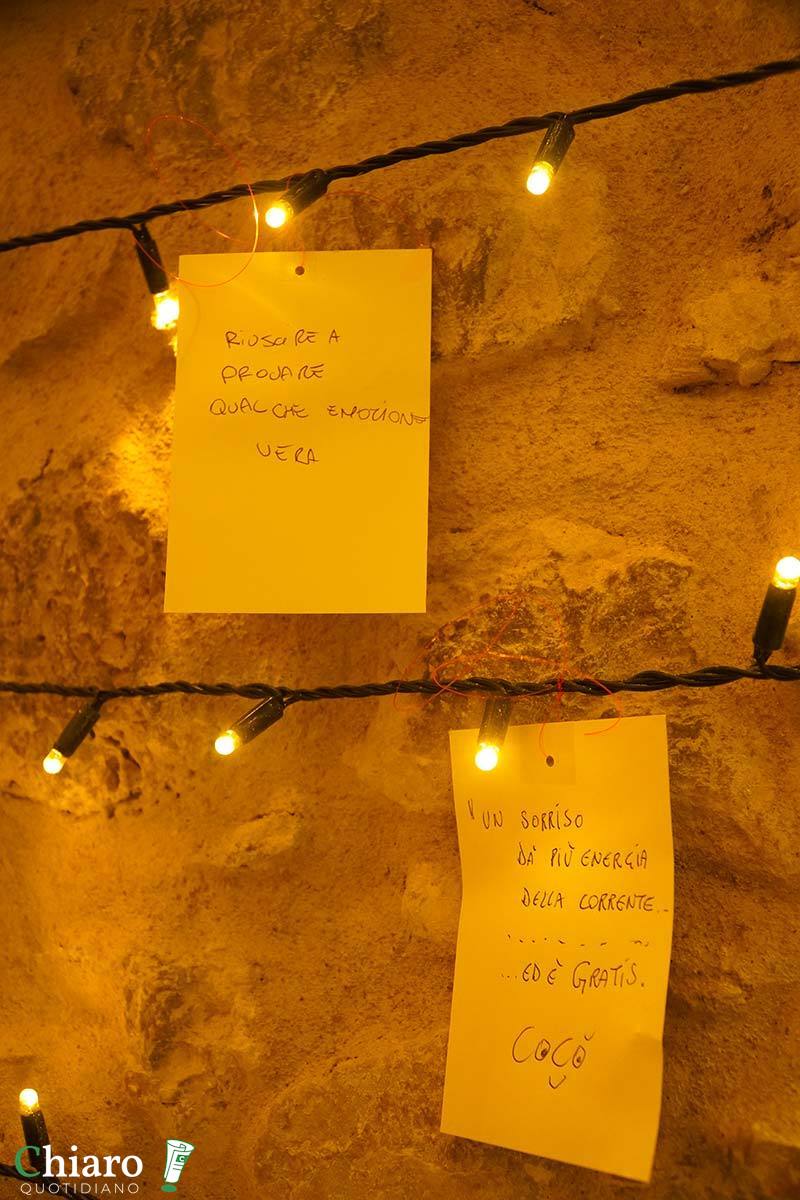 RIUSCIRE A
PROVARE
QUALCHE EMOZIONE
VERA
"UN SORRISO
DA' PIÙ ENERGIA
DELLA CORRENTE...
...ED È GRATIS.
COCÒ
Chiaro
QUOTIDIANO